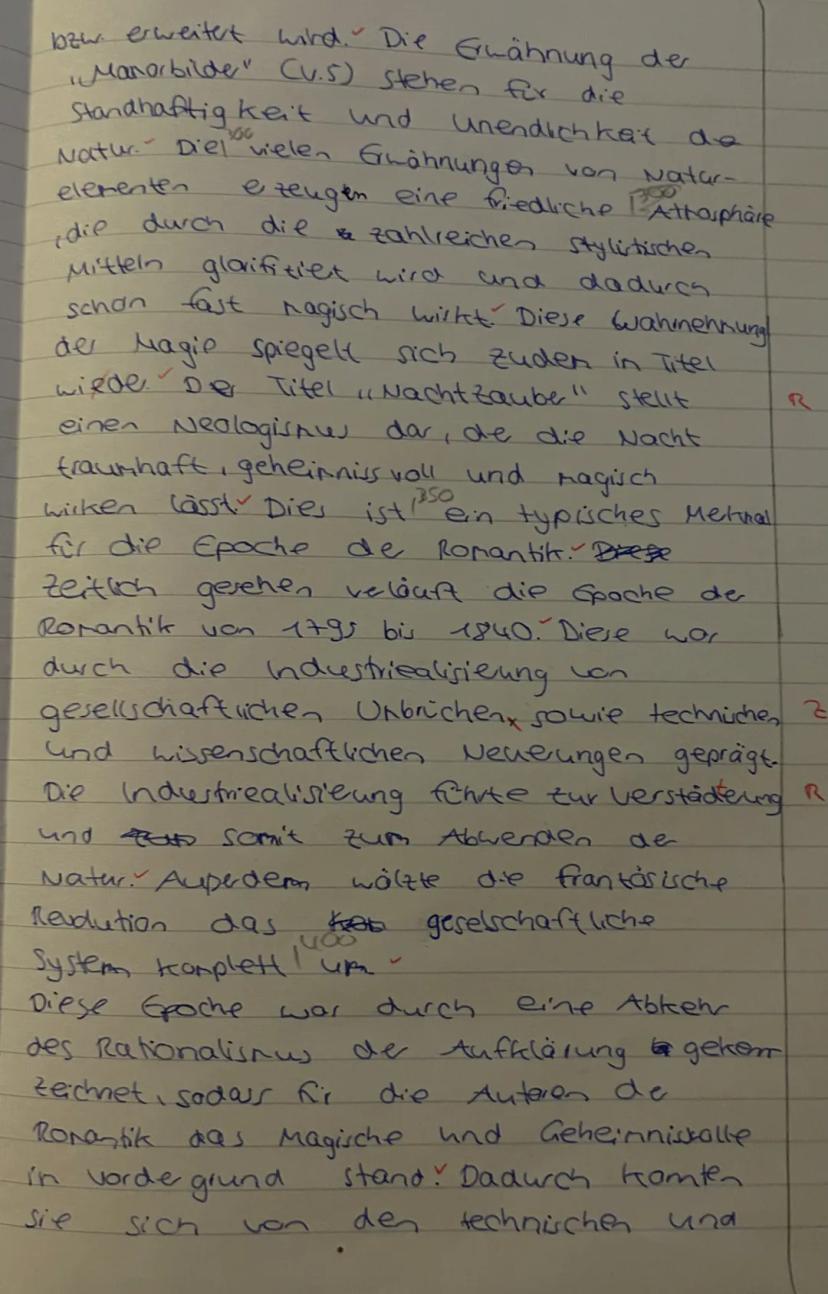 bzw. erweitert wird. Die Erwähnung der
„Marmorbilder" (V.5) stehen für die
Standhaftigkeit und Unendlichkeit der
Natur. Die 300 vielen Erwähnungen von Natur-
elementen erzeugen eine friedliche 300 Atmosphäre
, die durch die zahlreichen stylistischen
Mitteln glorifiziert wird und dadurch
schon fast magisch wirkt. Diese Wahrnehmung
der Magie spiegelt sich zudem in Titel
wieder. Der Titel „Nachtzauber" stellt R
einen Neologismus dar, der die Nacht
traumhaft, geheimnissvoll und magisch
wirken lässt. Dies ist 350 ein typisches Merkmal
für die Epoche der Romantik. Diese
Zeitlich gesehen verläuft die Epoche der
Romantik von 1795 bis 1840. Diese war
durch die Industriealisierung von
gesellschaftlichen Umbrüchen, sowie technischen Z
und wissenschaftlichen Neuerungen geprägt.
Die Industriealisierung führte zur Verstädterung R
und somit zum Abwenden der
Natur. Außerdem wälzte die französische
Revolution das geselschaftliche
System komplett 400 um
Diese Epoche war durch eine Abkehr
des Rationalismus der Aufklärung gekenn
zeichnet, sodass für die Autoren der
Romantik das Magische und Geheimnisvolle
in Vordergrund stand. Dadurch konnten
sie sich von den technischen und